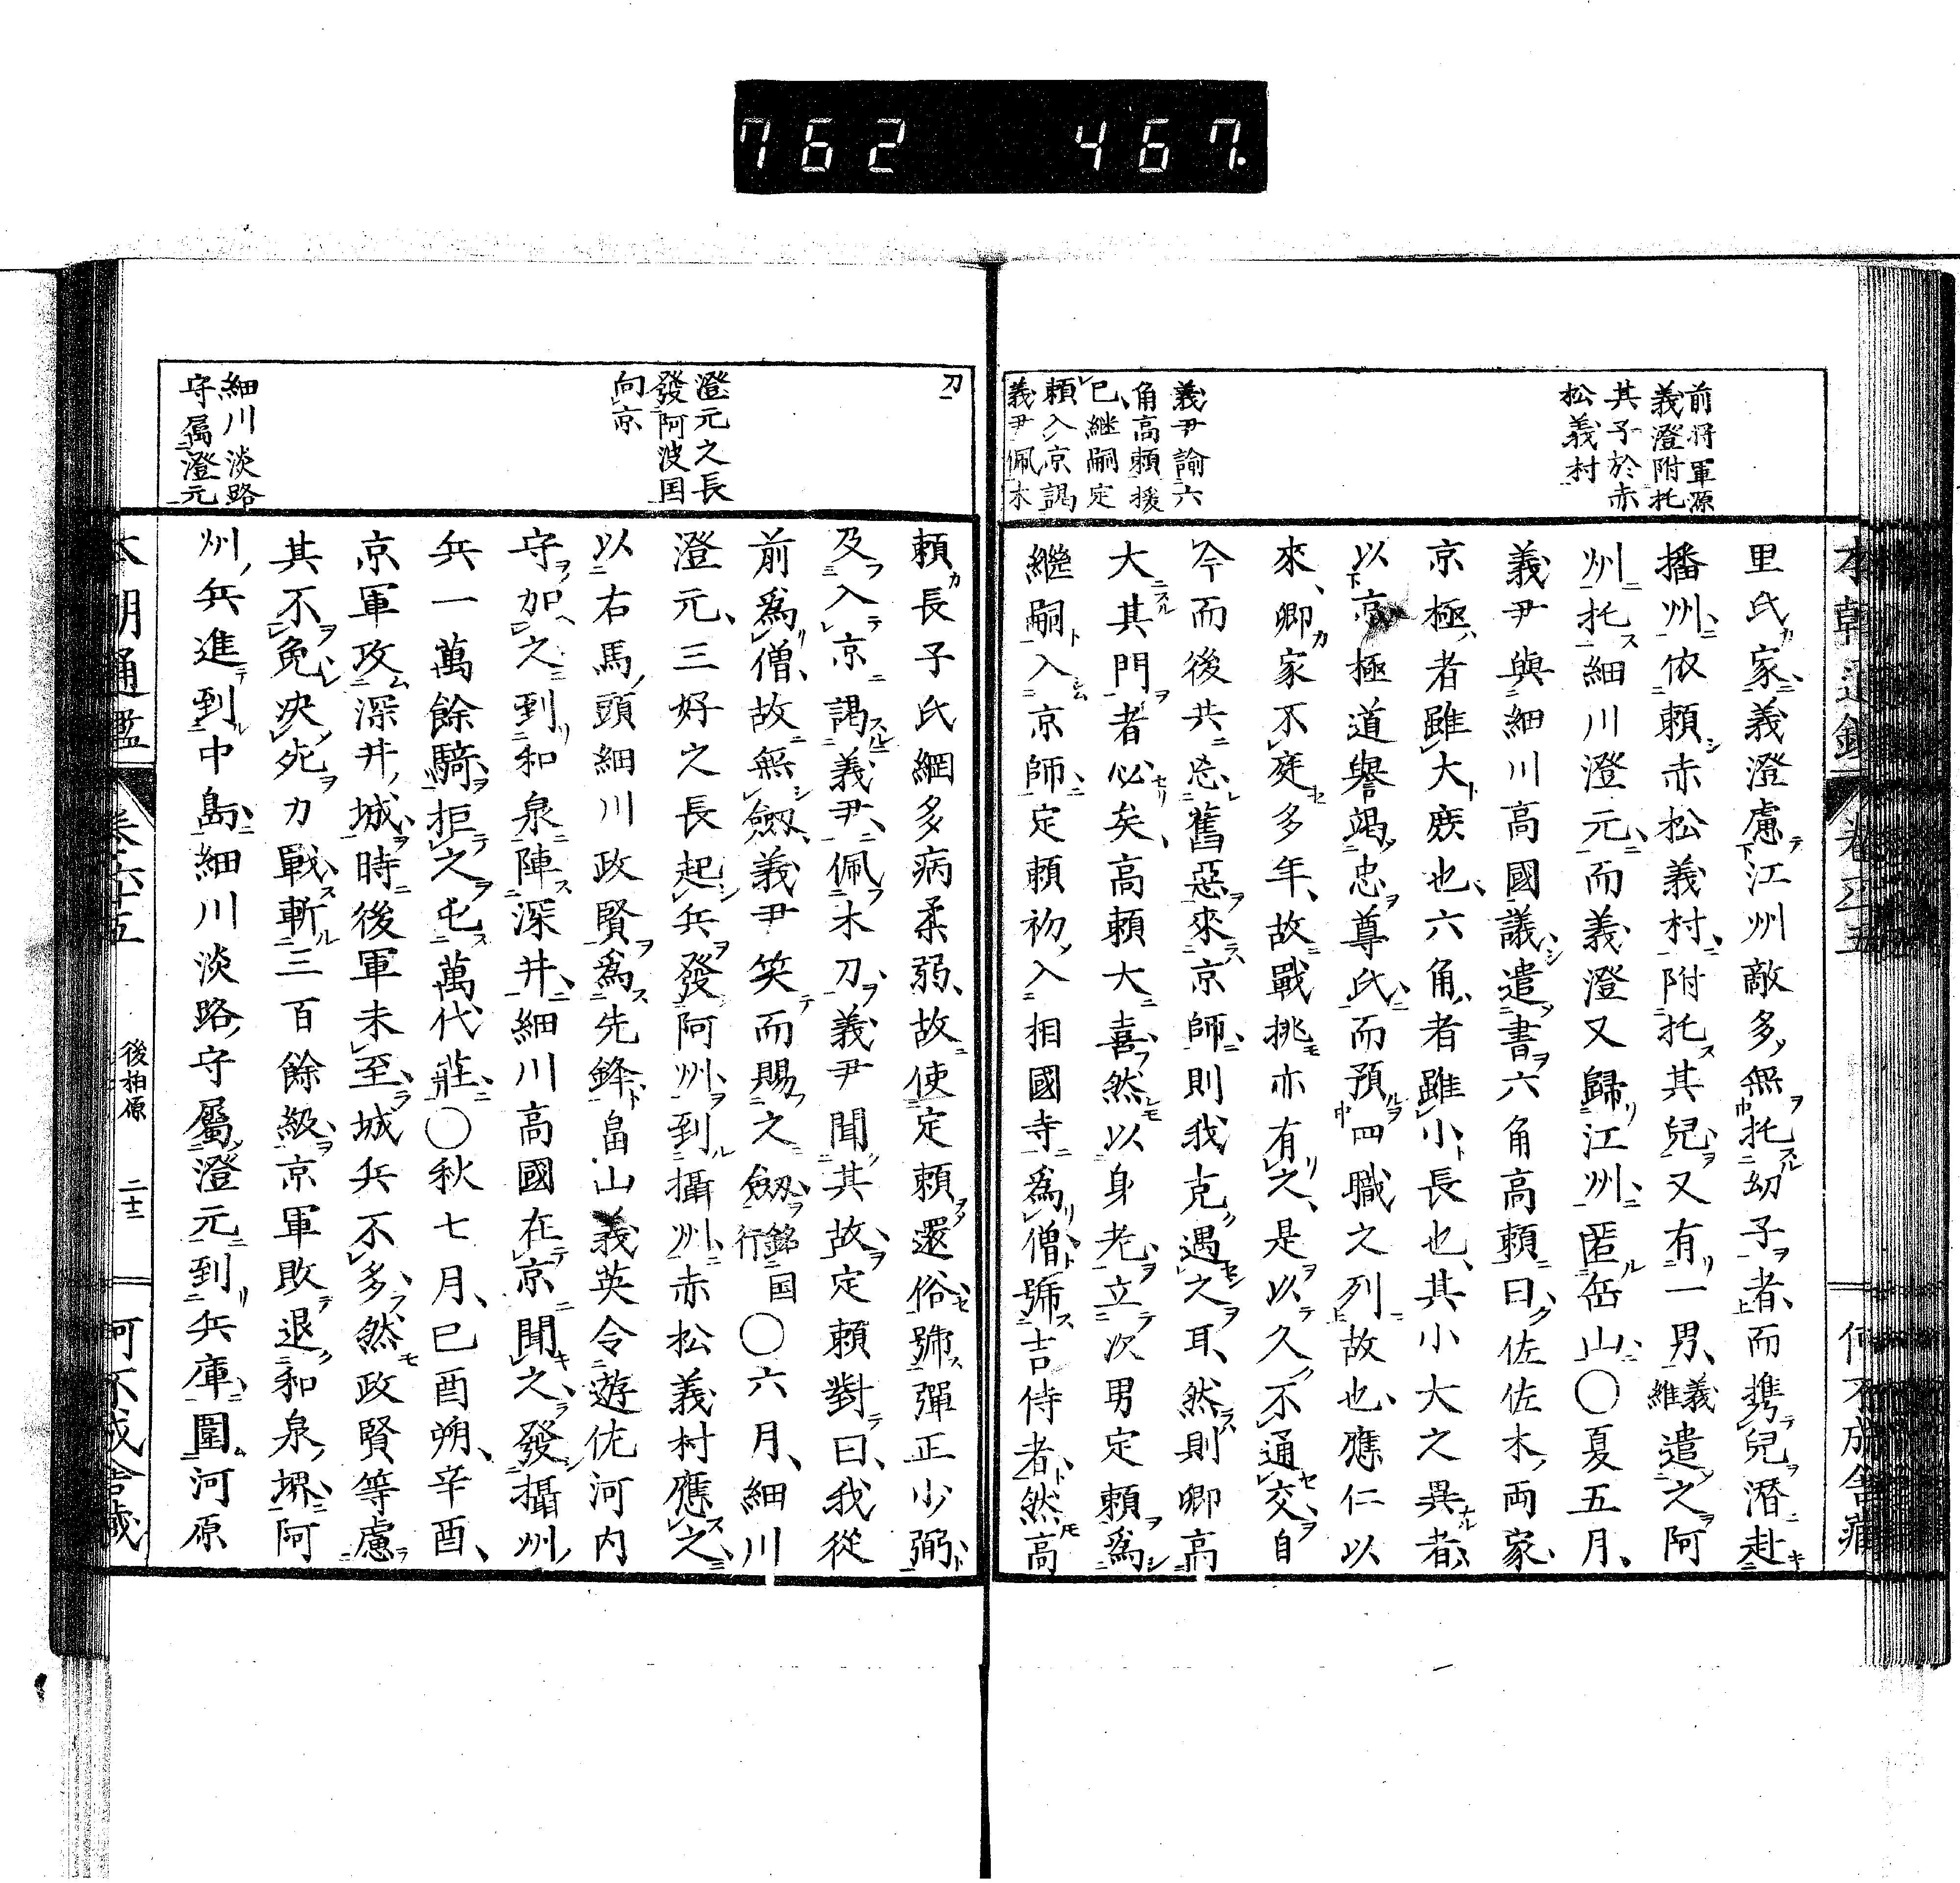 762 467.
前将軍源
義澄附托
其子於赤
松義村
義尹諭六
角高頼援
已継嗣定
頼入京謁
義尹佩木
里氏家義澄慮江州敵多無托幼子者而携兒潛赴
播州依頼赤松義村附托其兒又有一男義維遣之阿
州托細川澄元而義澄又歸江州匿岳山○夏五月
義尹與細川高國議遣書六角高頼曰佐佐木両家
京極者雖大族也六角者雖小長也其小大之異者
以京極道譽竭忠尊氏而預四職之列故也應仁以
來卿家不庭多年故戰挑亦有之是以久不通交自
今而後共忘舊惡來京師則我克遇之耳然則卿高
大其門者必矣高頼大喜然以身老立次男定頼爲
繼嗣入京師定頼初入相國寺爲僧號吉侍者然高
刀
澄元之長
發阿波国
向京
細川淡路
守属澄元
頼長子氏綱多病柔弱故使定頼還俗號彈正少弼
及入京謁義尹佩木刀義尹聞其故定頼對曰我從
前爲僧故無劔義尹笑而賜之劔銘国行○六月細川
澄元三好之長起兵發阿州到攝州赤松義村應之
以右馬頭細川政賢爲先鋒畠山義英令遊佐河内
守加之到和泉陣深井細川高國在京聞之發攝州
兵一萬餘騎拒之屯萬代莊○秋七月己酉朔辛酉
京軍攻深井城時後軍未至城兵不多然政賢等慮
其不免决死力戰斬三百餘級京軍敗退和泉堺阿
州兵進到中島細川淡路守屬澄元到兵庫圍河原
本朝通鑑 卷六十五 後柏原 二十二 何不成舎蔵